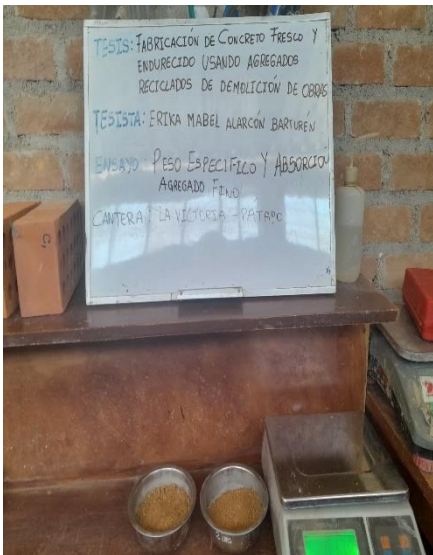 TESIS: FABRICACIÓN DE CONCRETO FRESCO Y
ENDURECIDO USANDO AGREGADOS
RECICLADOS DE DEMOLICIÓN DE OBRAS
TESISTA: ERIKA MABEL ALARCÓN BARTURÉN
ENSAYO: PESO ESPECIFICO Y ABSORCION
AGREGADO FINO
CANTERA: LA VICTORIA - PATAPO